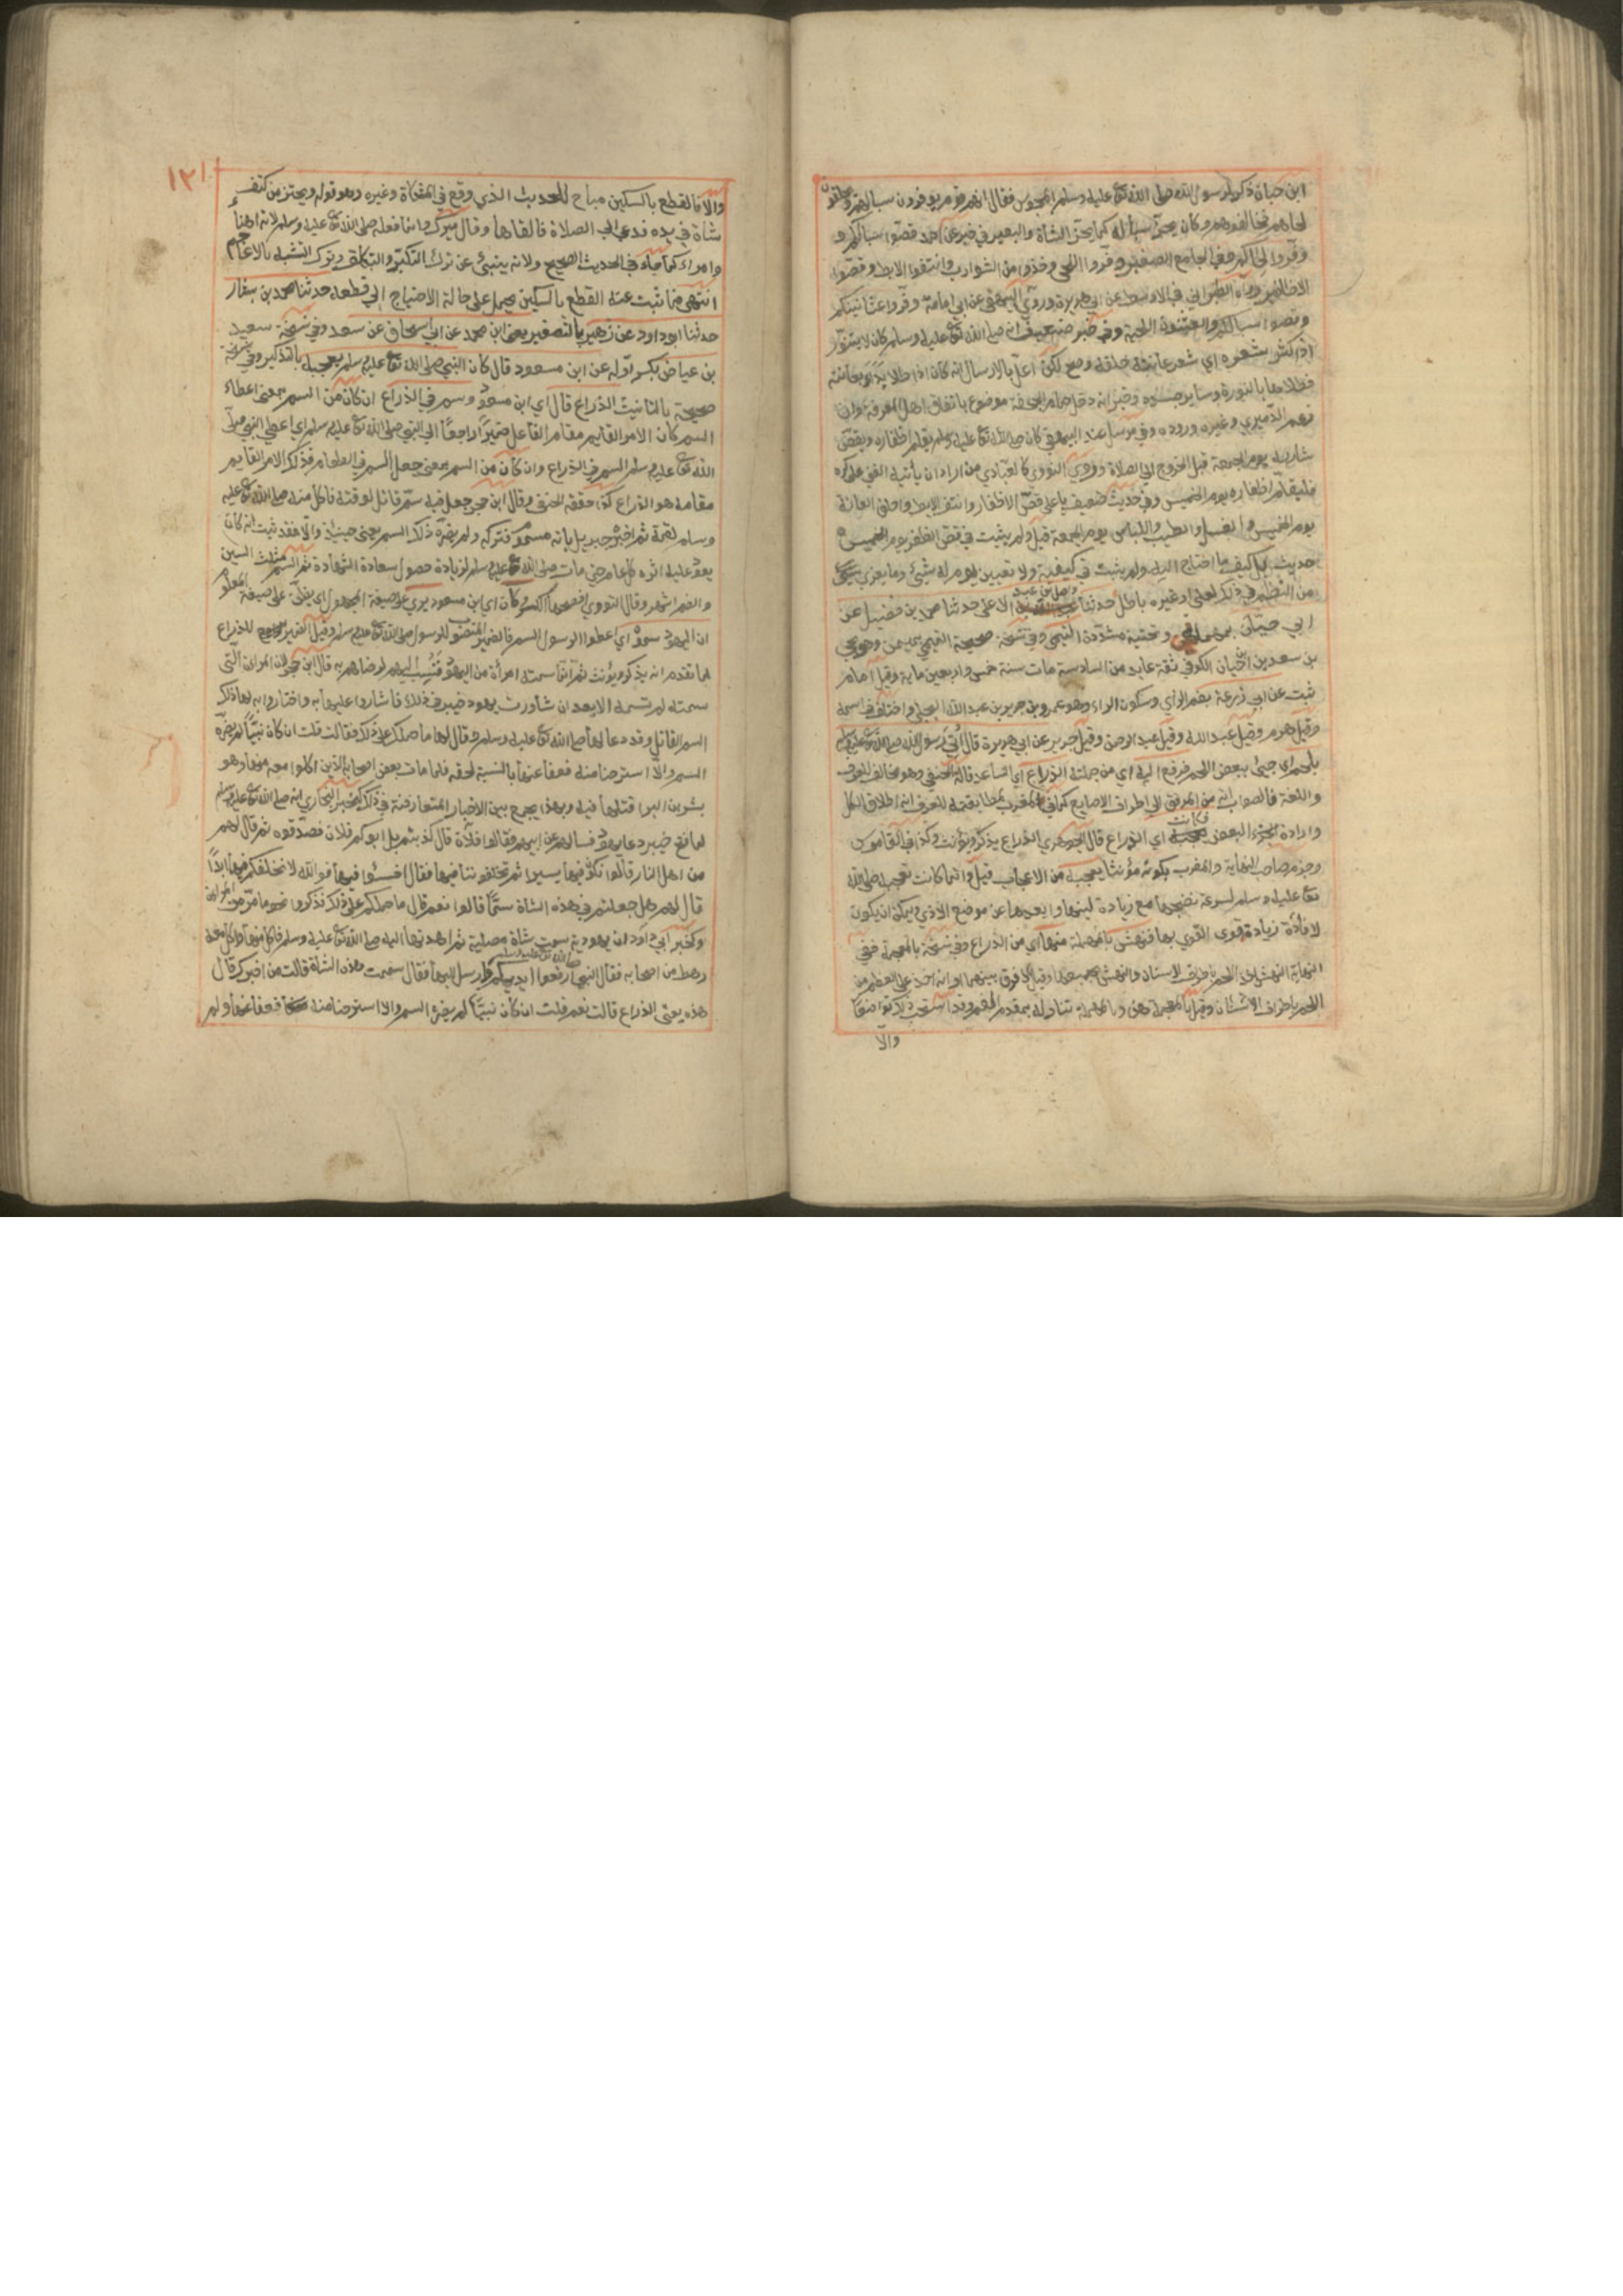 ابن حبان ذكر لرسول الله صلى الله تع عليه وسلم المجوس فقال انهم قوم يوفرون سبالهم ويحلقون
لحاهم فخالفوهم وكان يجز سباله كما يجز الشاة والبعير في خبر عن احمد قصوا سبالكم و
وفروا لحاكم وفي الجامع الصغير وفروا اللحى وخذوا من الشوارب وانتفوا الابط وقصوا
الاظافير رواه الطبراني في الاوسط عن ابي هريرة وروى البيهقي عن ابي امامة وفروا عثانينكم
وقصوا سبالكم والعثنون اللحية وفي خبر ضعيف انه صلى الله تع عليه وسلم كان لا يتنور
اذا كثر شعره اي شعر عانته حلقه وصح لكن اعل بالارسال انه كان اذا طلا بدأ بعانته
فطلاها بالنورة وساير جسده وخبر انه دخل حمام الجحفة موضوع باتفاق اهل المعرفة وان
زعم الدميري وغيره وروده وفي مرسل عند البيهقي كان صلى الله تع عليه وسلم يقلم اظفاره ويقص
شاربه يوم الجمعة قبل الخروج الى الصلاة وروى النووي كالعبادي من اراد ان يأتيه الغنى على كره
فليقلم اظفاره يوم الخميس وفي حديث ضعيف يا علي قص الاظفار وانتف الابط واحلق العانة
يوم الخميس والغسل والطيب واللباس يوم الجمعة قيل ولم يثبت في قص الظفر يوم الخميس
حديث بل كيف ما احتاج اليه ولم يثبت في كيفيته ولا تعيين يوم له شيء وما يعزى
من النظم في ذلك لعلي او غيره باطل حدثنا واصل بن عبد الاعلى حدثنا محمد بن فضيل عن
ابي حيان وتحتية مشددة التيمي وفي نسخة صحيحة التيمي بميمين وهو يحيى
بن سعيد بن حيان الكوفي ثقة عابد من السادسة مات سنة خمس واربعين ماية وقيل امام
ثبت عن ابي زرعة بضم الزاي وسكون الراء وهو عمرو بن جرير بن عبد الله البجلي واختلف في اسمه
فقيل هرم وقيل عبد الله وقيل عبد الرحمن وقيل جرير عن ابي هريرة قال اتي رسول الله صلى الله تع عليه وسلم
بلحم اي جيئ ببعض اللحم فرفع اليه اي من جملته الذراع اي الساعد قاله الحنفي وهو مخالف للعرف
واللغة فالصواب انه من المرفق الى اطراف الاصابع كما في المغرب لمطابقته للعرف انه اطلاق الكل
وارادة البعض وكانت اي الذراع قال الجوهري الذراع يذكر ويؤنث وكذا في القاموس
وجزم صاحب النهاية والمغرب بكونه مؤنثا يعجبه من الاعجاب قيل وانما كانت تعجبه صلى الله
تع عليه وسلم لسرعة نضجها مع زيادة لينها وابعدها عن موضع الاذى ويمكن ان يكون
لافادة زيادة قوى القوي بها فنهش بالمهملة منها اي من الذراع وفي نسخة بالمعجمة ففي
النهاية النهش اخذ اللحم باطراف الاسنان والنهش بجميعها وقيل لا فرق بينهما انه اخذ على العظم من
اللحم باطراف الاسنان وقيل بالمعجمة هذا وبالمهملة تناوله بمقدم الفم وقد استحب ذلك تواضعا
والا
١٢١
والا فالقطع بالسكين مباح للحديث الذي وقع في المشكاة وغيره وهو قوله ويحتز من كتف
شاة في يده فدعي الى الصلاة فالقاها وقال ميرك وانما فعله صلى الله تع عليه وسلم لانه اهنأ
وامراء كما جاء في الحديث الصحيح ولانه ينبئ عن ترك التكبر والتكلف وترك التشبه بالاعاجم
انتهى فما ثبت عنه القطع بالسكين يحمل على حالة الاحتياج الى قطعه حدثنا محمد بن بشار
حدثنا ابو داود عن زهير بالتصغير يعني ابن محمد عن ابي اسحاق عن سعد وفي نسخة سعيد
بن عياض بكسر اوله عن ابن مسعود قال كان النبي صلى الله تع عليه وسلم يعجبه بالتذكير وفي نسخة
صحيحة بالتانيث الذراع قال اي ابن مسعود وسم في الذراع ان كان من السم بمعنى اعطاء
السم كان الامر القايم مقام الفاعل ضميرا راجعا الى النبي صلى الله تع عليه وسلم اي اعطي النبي صلى
الله تع عليه وسلم السم في الذراع وان كان من السم بمعنى جعل السم في الطعام فذلك الامر القايم
مقامه هو الذراع كذا حققه الحنفي وقال ابن حجر جعل فيه سم قاتل لوقته فاكل منه صلى الله تع عليه
وسلم لقمة ثم اخبره جبريل بانه مسموم فتركه ولم يضره ذلك السم يعني حينئذ والا فقد ثبت انه كان
يعود عليه اثره كل عام حتى مات صلى الله تع عليه وسلم لزيادة حصول سعادة الشهادة ثم السم مثلث السين
والضم اشهر وقال النووي افصحها الكسر وكان اي ابن مسعود يرى على صيغة المجهول اي يظن على صيغة المعلوم
ان اليهود سموه اي اعطوا الرسول السم فالضمير المنصوب للرسول صلى الله تع عليه وسلم وقيل الضمير للذراع
لما تقدم انه يذكر ويؤنث ثم انما سمته امرأة من اليهود فنسب اليهم لرضاهم به قال ابن حجر لان المراة التي
سمته لم تسمه الا بعد ان شاورت يهود خيبر في ذلك فاشاروا عليها به واختاروا به لها ذلك
السم القاتل وقد دعا لها صلى الله تع عليه وسلم وقال لها ما حملك على ذلك فقالت قلت ان كان نبيا لم يضره
السم والا استرحنا منه فعفا عنها بالنسبة لحقه فلما مات بعض اصحابه الذين اكلوا معه منها وهو
بشر بن البراء قتلها فيه وبهذا يجمع بين الاخبار المتعارضة في ذلك كخبر البخاري انه صلى الله تع عليه وسلم
لما فتح خيبر دعا يهود فسالهم عن ابيهم فقالوا فلان قال كذبتم بل ابوكم فلان فصدقوه ثم قال لهم
من اهل النار قالوا نكون فيها يسيرا ثم تخلفوننا فيها فقال اخسئوا فيها فوالله لا نخلفكم فيها ابدا
قال لهم هل جعلتم في هذه الشاة سما قالوا نعم قال ما حملكم على ذلك فذكروا نحو ما مر من المراة
وكخبر ابي داود ان يهودية سمت شاة مصلية ثم اهدتها اليه صلى الله تع عليه وسلم فاكل منها واكل معه
رهط من اصحابه فقال النبي صلى الله تع عليه وسلم ارفعوا ايديكم وارسل اليها فقال سممت هذه الشاة قالت من اخبرك قال
هذه يعني الذراع قالت نعم قلت ان كان نبيا لم يضره السم والا استرحنا منه فعفا عنها ولم